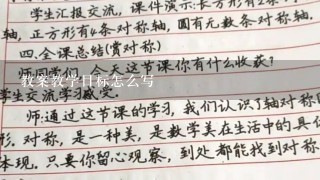 学生汇报交流，课件演示:长方形有2条
轴，正方形有4条对称轴，圆有无数条对称轴.
四.全课总结(赏对称)
同学们，今天这节课你有什么收获?
教案教学目标怎么写
学生交流学习感受.
师:通过这节课的学习，我们认识了轴对称
形.对称，是一种美，是数学美在生活中的具
体现.只要你留心观察，到处都能找到对称